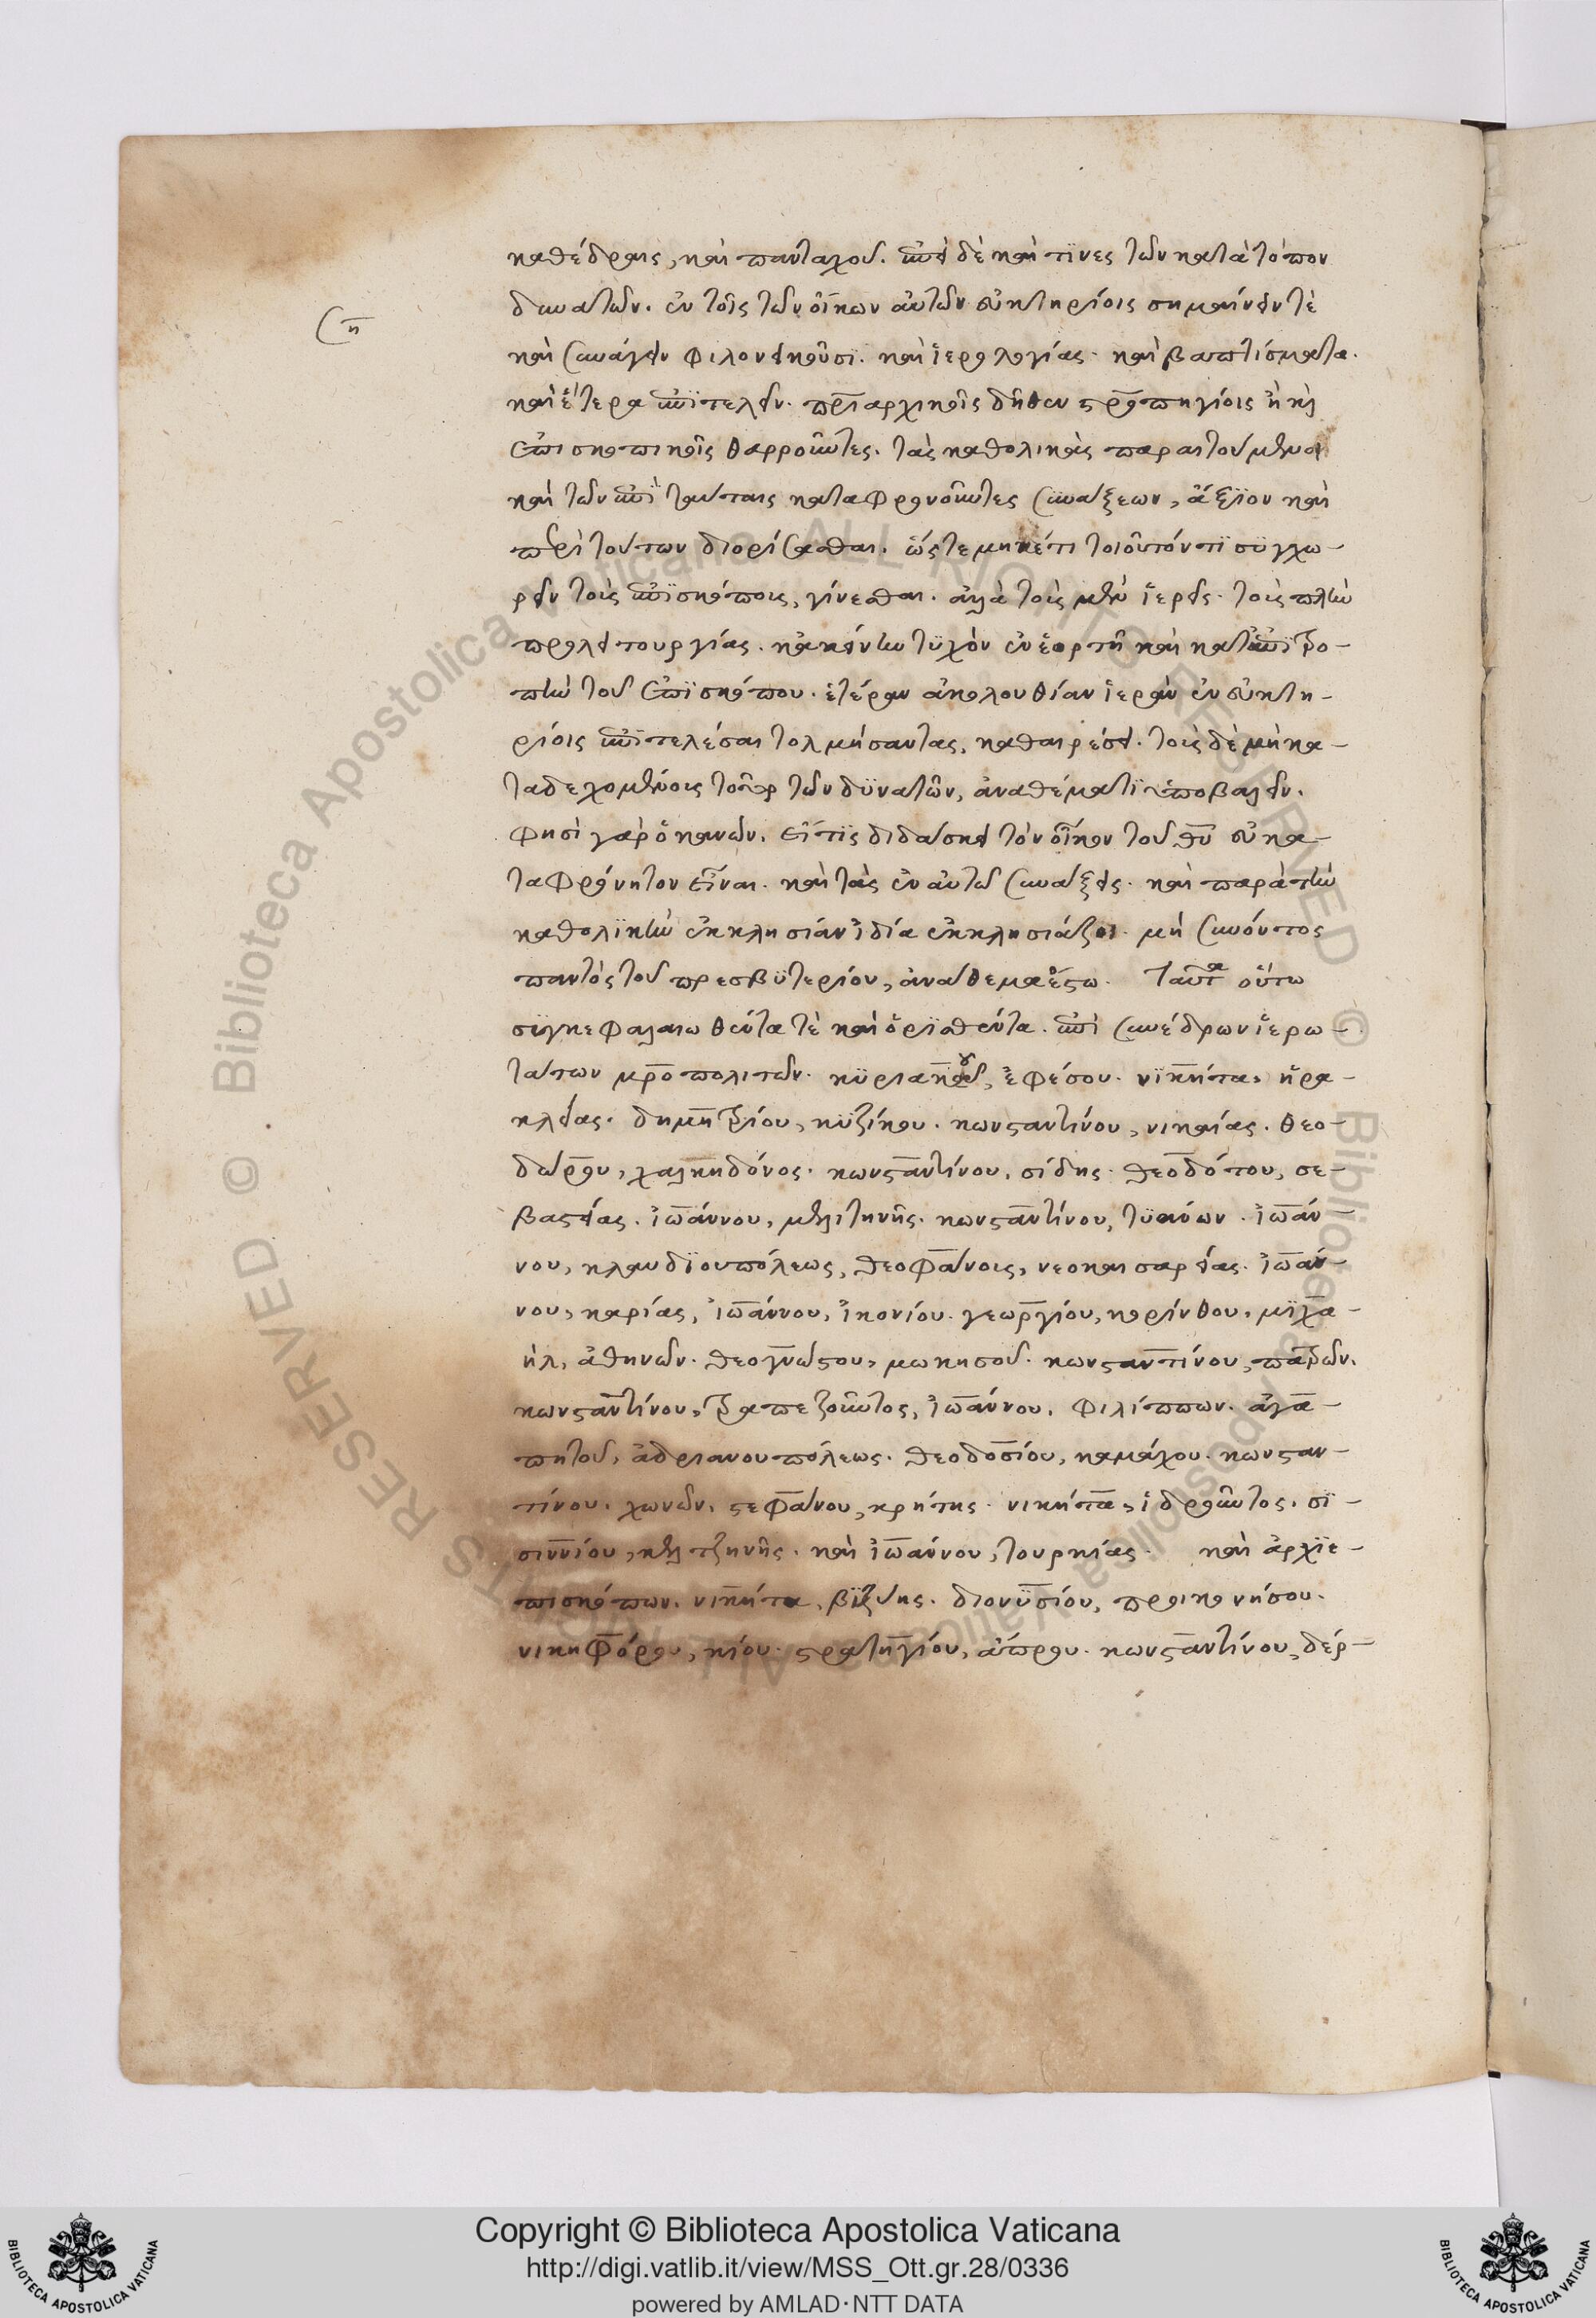 καθέδραις, καὶ πανταχοῦ. ἐπεὶ δὲ καὶ τινὲς τῶν κατὰ τόπον
δυνατῶν. ἐν τοῖς τῶν οἴκων αὐτῶν εὐκτηρίοις σημαίνειν τὲ
ση
καὶ συνάγειν φιλονεικοῦσι. καὶ ἱερολογίας. καὶ βαπτίσματα.
καὶ ἕτερα ἐπιτελεῖν. πριαρχικοῖς δῆθεν σρο̅πηγίοις ἢ καὶ
ἐπισκοπικοῖς θαρροῦντες. τὰς καθολικὰς παραιτούμενοι
καὶ τῶν ἐπὶ ταύταις καταφρονοῦντες συνάξεων, ἄξιον καὶ
περὶ τούτων διορίσασθαι. ὥστε μηκέτι τοιοῦτόν τι συγχω-
ρεῖν τοῖς ἐπισκόποις, γίνεσθαι. ἀλλὰ τοὺς μὲν ἱερεῖς. τοὺς πλὴν
προλειτουργίας. κἀκείνην τυχὸν ἐν ἑορτῇ καὶ κατεπιτρο-
πὴν τοῦ ἐπισκόπου. ἑτέραν ἀκολουθίαν ἱερὰν ἐν εὐκτη-
ρίοις ἐπιτελέσαι τολμήσαντας, καθαιρέσει. τοὺς δὲ μὴ κα-
ταδεχομένους τοῦτο τῶν δυνατῶν, ἀναθέματι ὑποβαλεῖν.
φησὶ γὰρ ὁ κανών. εἴ τις διδάσκει τὸν οἶκον τοῦ θυ̅ εὐκα-
ταφρόνητον εἶναι. καὶ τὰς ἐν αὐτῶ συνάξεις. καὶ παρὰ τὴν
καθολικὴν ἐκκλησίαν ἰδία ἐκκλησιάζοι. μὴ συνόντος
παντὸς τοῦ πρεσβυτερίου, ἀνάθεμα ἔστω. Ταῦτα οὕτω
συγκεφαλαιωθέντα τὲ καὶ ὁρισθέντα. ἐπὶ συνέδρων ἱερω-
τάτων μρο̅πολιτῶν. κυριακοῦ, ἐφέσου. νικήτα, ἡρα-
κλείας. δημητρίου, κυζίκου. κωνσταντίνου, νικαίας. θεο-
δώρου, χαλκηδόνος. κωνσταντίνου, σίδης. θεοδότου, σε-
βαστείας. ἰωάννου, μελιτηνῆς. κωνσταντίνου, τυάνων. ἰωάν-
νου, κλαυδιουπόλεως, θεοφάνους, νεοκαισαρείας. ἰωάν-
νου, καρίας, ἰωάννου, ἰκονίου. γεωργίου, κορίνθου, μιχα-
ήλ, ἀθηνῶν. θεογνώστου, μωκησοῦ. κωνσταντίνου, πατρῶν.
κωνσταντίνου, τραπεζοῦντος, ἰωάννου, φιλίππων. ἀγα-
πητοῦ, ἀδριανουπόλεως. θεοδοσίου, καμάχου. κωνσταν-
τίνου. χωνῶν. στεφάνου, κρήτης. νικήτα, ἱδροῦντος. σι-
σιννίου, κελτζηνῆς. καὶ ἰωάννου, τουρκίας. καὶ ἀρχιε-
πισκόπων. νικήτα, βιζύης. διονυσίου, προικονήσου.
νικηφόρου, κίου. στρατηγίου, ἄπρου. κωνσταντίνου, δέρ-
Copyright © Biblioteca Apostolica Vaticana
http://digi.vatlib.it/view/MSS_Ott.gr.28/0336
powered by AMLAD·NTT DATA